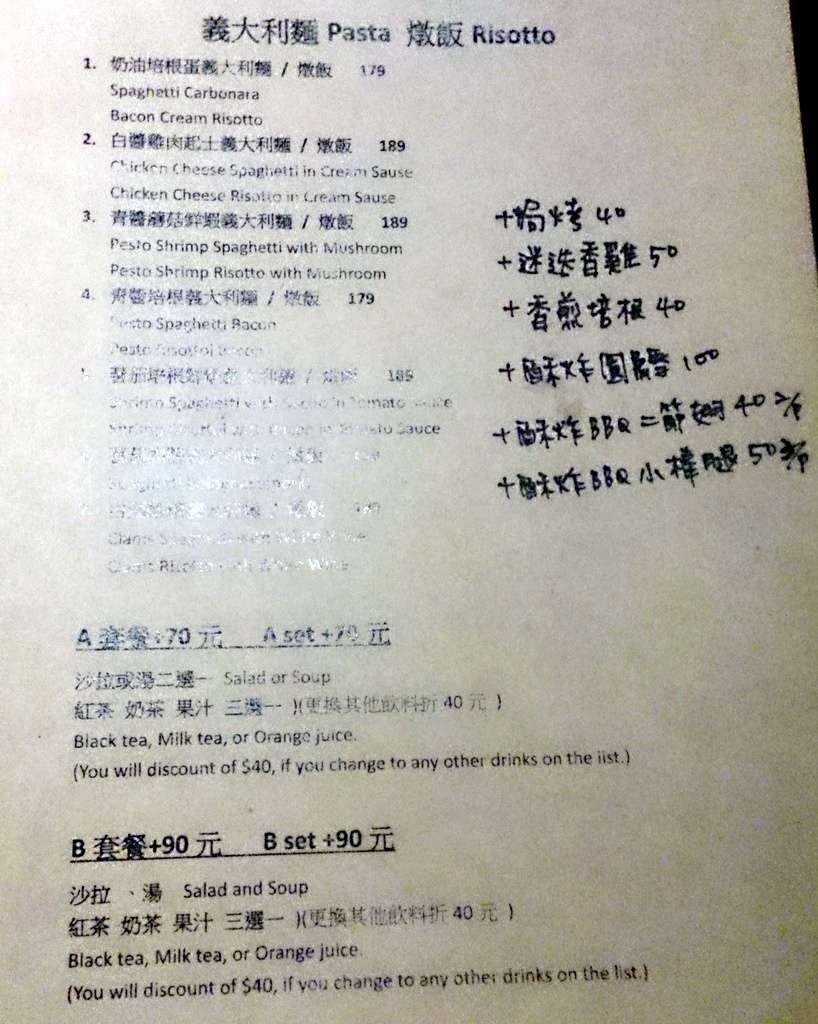 義大利麵 Pasta 燉飯 Risotto
1. 奶油培根蛋義大利麵 / 燉飯 179
Spaghetti Carbonara
Bacon Cream Risotto
2. 白醬雞肉起士義大利麵 / 燉飯 189
Chicken Cheese Spaghetti in Cream Sause
Chicken Cheese Risotto in Cream Sause
3. 青醬蘑菇鮮蝦義大利麵 / 燉飯 189
Pesto Shrimp Spaghetti with Mushroom
Pesto Shrimp Risotto with Mushroom
4. 青醬培根義大利麵 / 燉飯 179
Pesto Spaghetti Bacon
Pesto Bacon
189
Shrimp Spaghetti with in Tomato Sauce
Sauce
Clams Spaghetti with White
Clams Wine
+焗烤 40
+迷迭香雞 50
+香煎培根 40
+酥炸圓鱈 100
+酥炸BBQ二節翅 40
+酥炸BBQ小棒腿 50
A 套餐+70 元 A set +70 元
沙拉或湯二選一 Salad or Soup
紅茶 奶茶 果汁 三選一 )(更換其他飲料折 40 元 )
Black tea, Milk tea, or Orange juice.
(You will discount of $40, if you change to any other drinks on the list.)
B 套餐+90 元 B set +90 元
沙拉 、湯 Salad and Soup
紅茶 奶茶 果汁 三選一 )(更換其他飲料折 40 元 )
Black tea, Milk tea, or Orange juice.
(You will discount of $40, if you change to any other drinks on the list.)